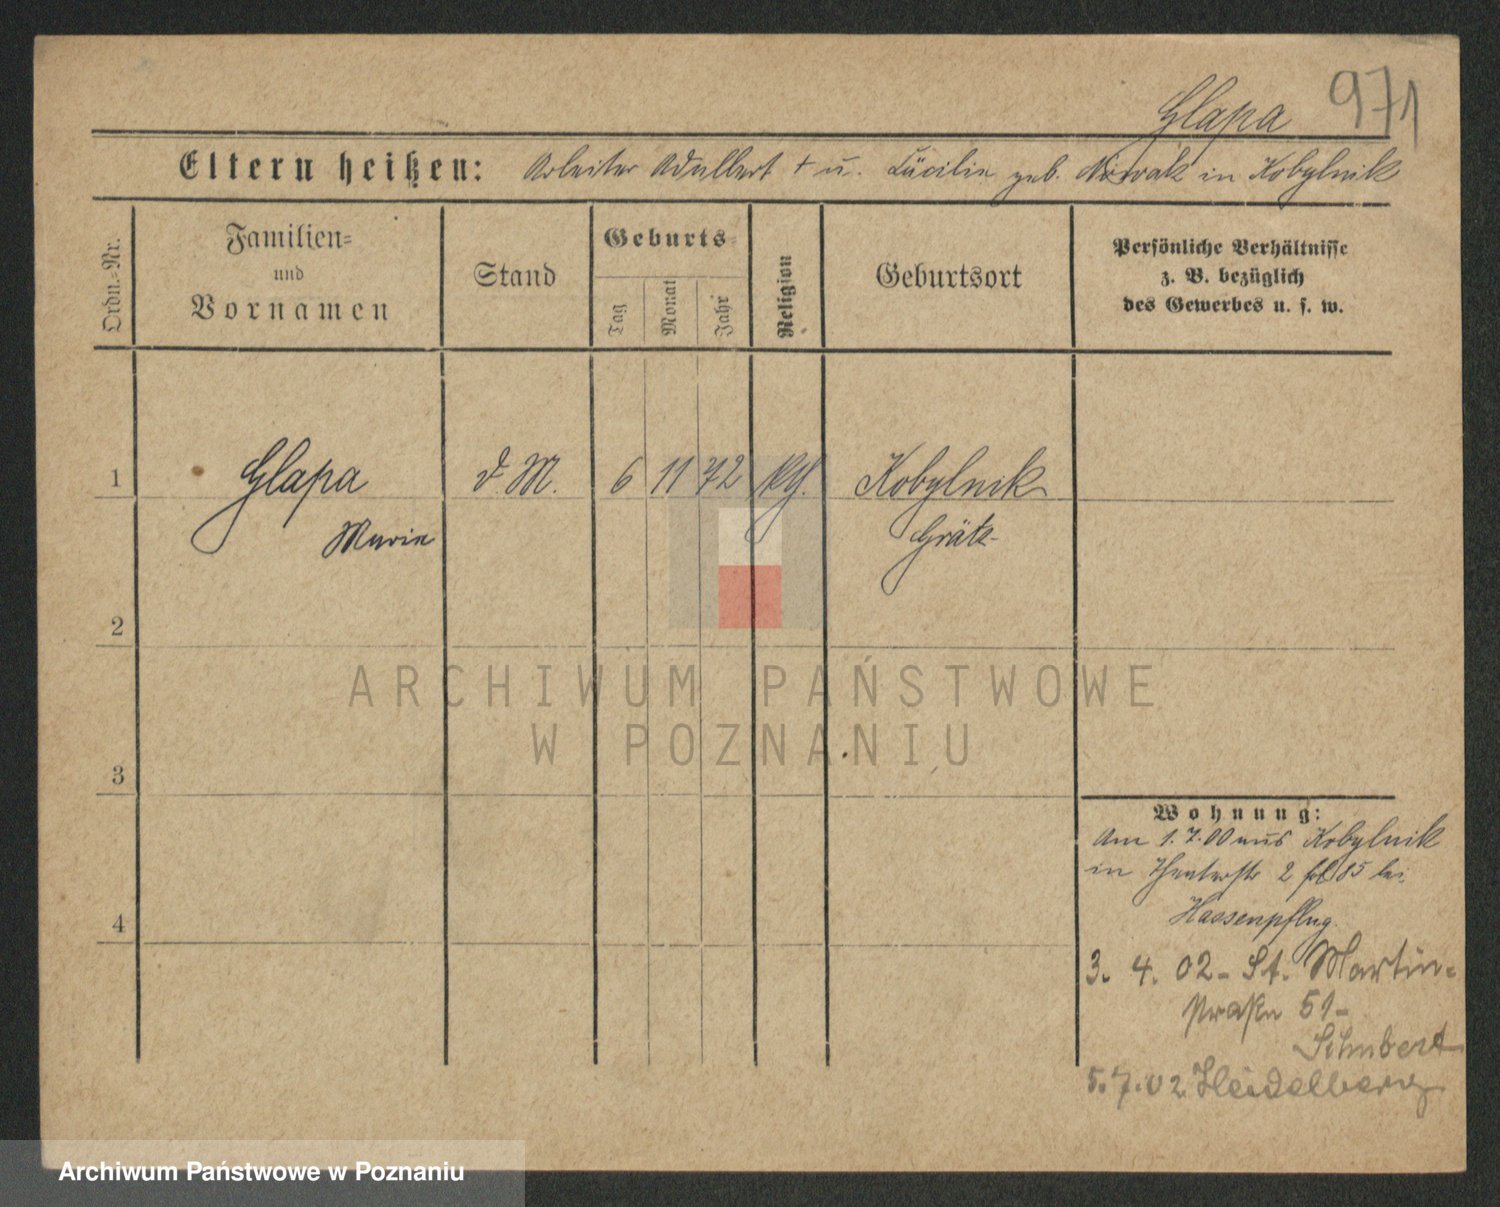 Glapa 971
Eltern heißen: Arbeiter Adalbert + u. Cäcilie geb. Nowak in Kobylnik
Ordn.=Nr.
Familien=
und
Vornamen
Stand
Geburts=
Tag
Monat
Jahr
Religion
Geburtsort
Persönliche Verhältnisse
z. B. bezüglich
des Gewerbes u. s. w.
1 Glapa d. M. 6 11 72 kth. Kobylnik
Marie Grätz
2
ARCHIWUM PAŃSTWOWE
W POZNANIU
3
Wohnung:
Am 1. 7. 00 aus Kobylnik
in Theaterstr 2 85 bei
Hassenpflug.
4
3. 4. 02 - St. Martin=
straße 51 -
Schubert
5. 7. 02 Heidelberg
Archiwum Państwowe w Poznaniu